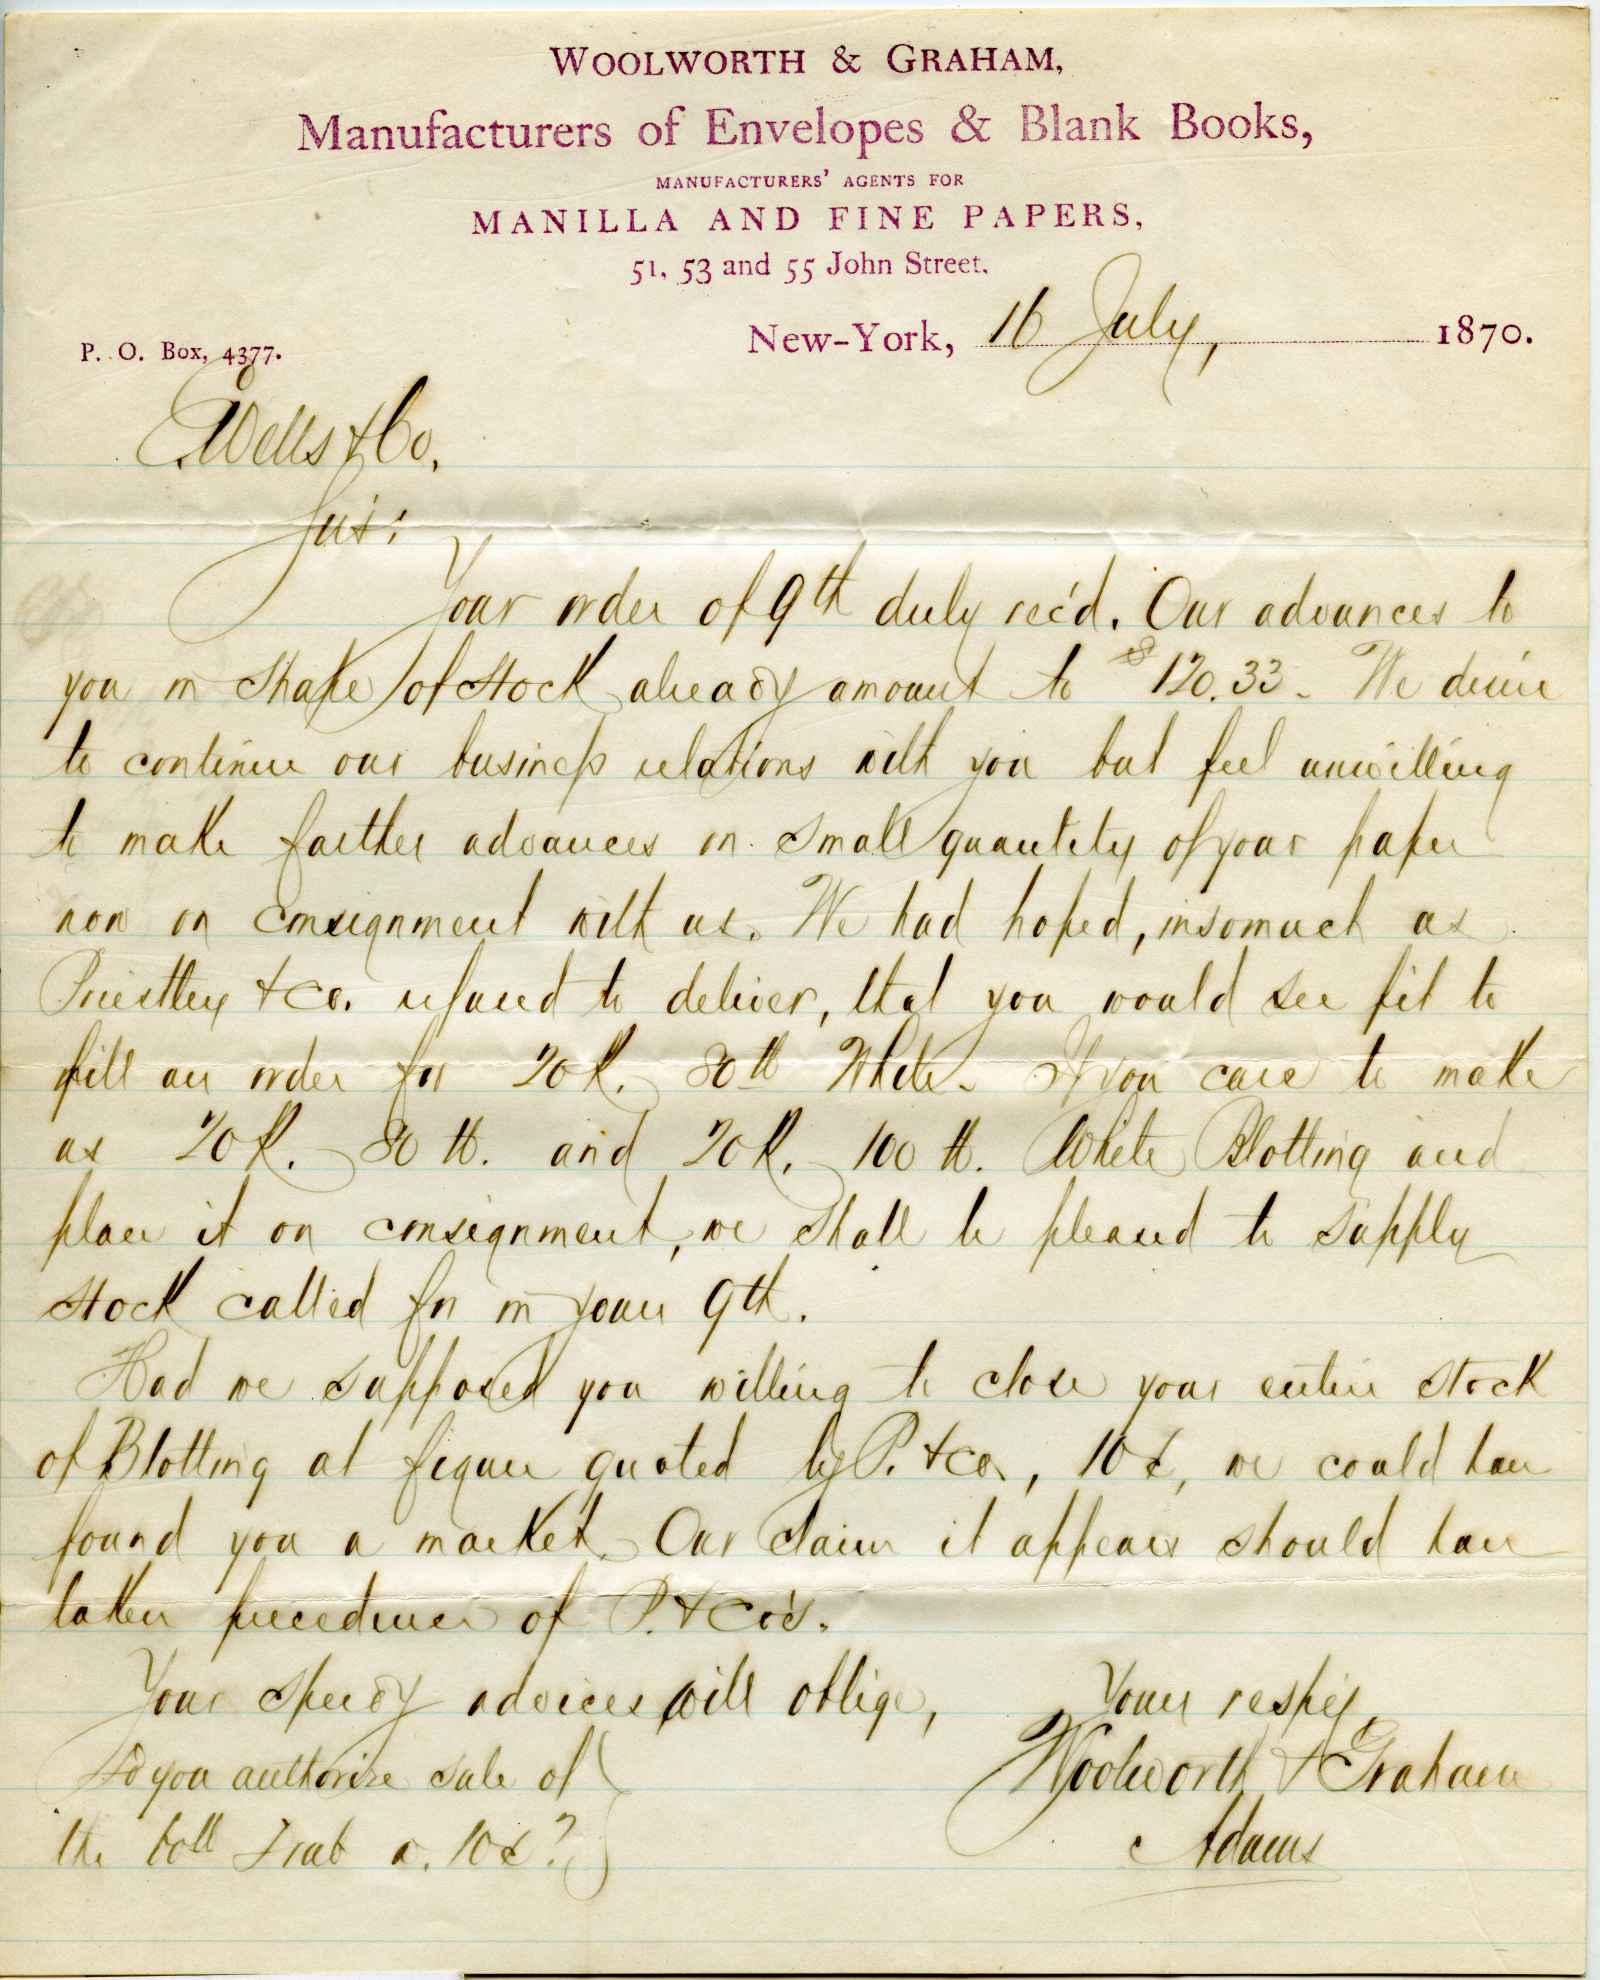 WOOLWORTH & GRAHAM,
Manufacturers of Envelopes & Blank Books,
MANUFACTURERS' AGENTS FOR
MANILLA AND FINE PAPERS,
51, 53 and 55 John Street.
New-York, 16 July, 1870.
P. O. Box, 4377.
E. Wells & Co,
Sirs:
Your order of 9th duly rec'd. Our advances to
you in shape of stock already amount to $120.33. We desire
to continue our business relations with you but feel unwilling
to make farther advances on small quantity of your paper
now on consignment with us. We had hoped, insomuch as
Priestley & Co. refused to deliver, that you would see fit to
fill an order for 20 R. 80 lb White. If you care to make
us 20 R. 80 lb. and 20 R. 100 lb. White Blotting and
place it on consignment, we shall be pleased to supply
stock called for in your 9th.
Had we supposed you willing to close your entire stock
of Blotting at figure quoted by P. & Co., 10¢, we could have
found you a market. Our claim it appears should have
taken precedence of P. & Co's.
Your speedy advices will oblige,
Yours respy,
Woolworth & Graham
Adams
Do you authorize sale of
the a. 10¢?